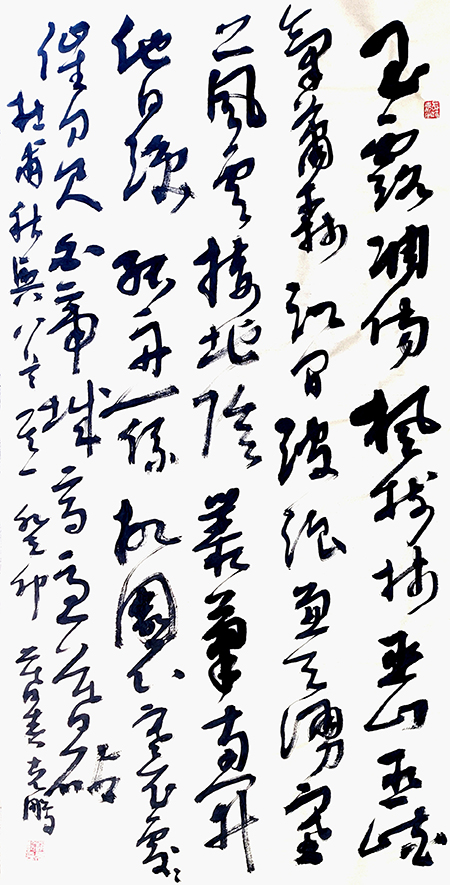 玉露凋傷楓樹林巫山巫峽
氣蕭森江間波浪兼天湧塞
上風雲接地陰叢菊兩開
他日淚孤舟一係故園心寒衣處々
催刀尺白帝城高急暮砧
杜甫秋興八首其一癸卯暮春克鵬